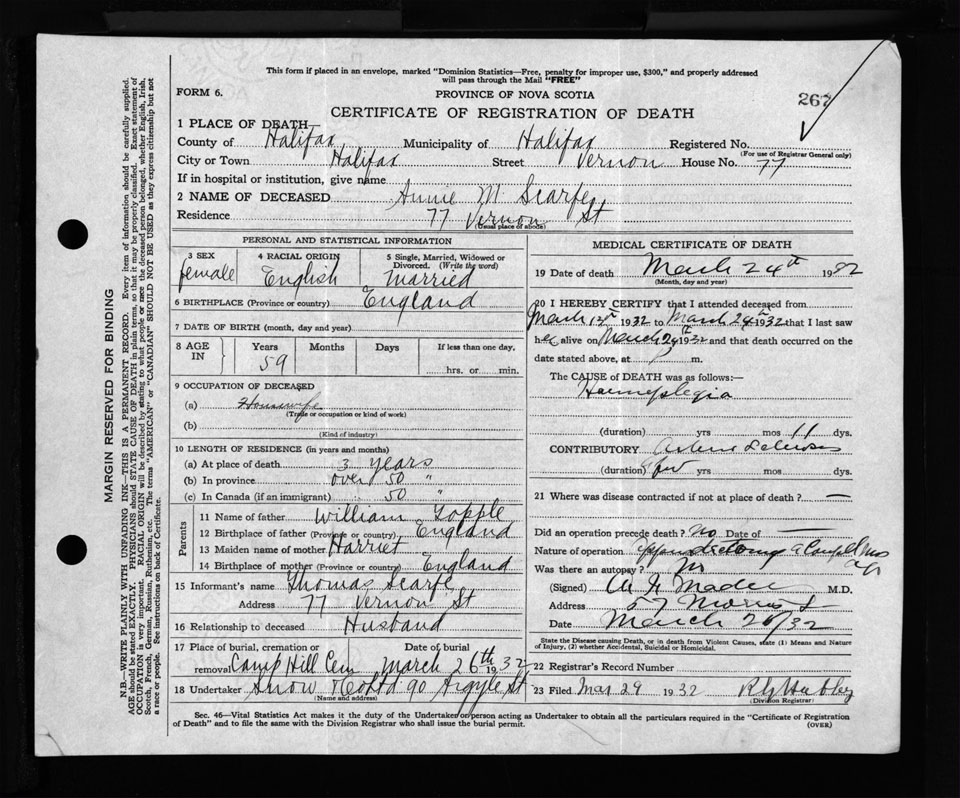 This form if placed in an envelope, marked "Dominion Statistics—Free, penalty for improper use, $300," and properly addressed
will pass through the Mail "FREE"
FORM 6.
PROVINCE OF NOVA SCOTIA
267
CERTIFICATE OF REGISTRATION OF DEATH
1 PLACE OF DEATH—
County of Halifax Municipality of Halifax Registered No.
(For use of Registrar General only)
City or Town Halifax Street Vernon House No. 77
If in hospital or institution, give name
2 NAME OF DECEASED Annie M. Scarfe
Residence 77 Vernon St
(Usual place of abode)
PERSONAL AND STATISTICAL INFORMATION
3 SEX
female
4 RACIAL ORIGIN
English
5 Single, Married, Widowed or Divorced. (Write the word)
Married
6 BIRTHPLACE (Province or country) England
7 DATE OF BIRTH (month, day and year)
8 AGE IN
Years Months Days If less than one day.
59 hrs. or min.
9 OCCUPATION OF DECEASED
(a) Housewife
(Trade or occupation or kind of work)
(b)
(Kind of industry)
10 LENGTH OF RESIDENCE (in years and months)
(a) At place of death 3 years
(b) In province over 50 "
(c) In Canada (if an immigrant) 50 "
Parents
11 Name of father William Topple
12 Birthplace of father (Province or country) England
13 Maiden name of mother Harriet
14 Birthplace of mother (Province or country) England
15 Informant's name Thomas Scarfe
Address 77 Vernon St
16 Relationship to deceased Husband
17 Place of burial, cremation or removal Camp Hill Cem
Date of burial March 26th 1932
18 Undertaker Snow & Co Ltd 90 Argyle St
(Name and address)
MEDICAL CERTIFICATE OF DEATH
19 Date of death March 24th 1932
(Month, day and year)
20 I HEREBY CERTIFY that I attended deceased from
March 13th 1932 to March 24th 1932 that I last saw
her alive on March 24th 1932 and that death occurred on the
date stated above, at m.
The CAUSE of DEATH was as follows:—
Haemeplegia
(duration) yrs mos 11 dys.
CONTRIBUTORY
(duration) yrs mos dys.
21 Where was disease contracted if not at place of death? —
Did an operation precede death? no Date of —
Nature of operation appendectomy a couple mos ago
Was there an autopsy? no
(Signed) Mader M.D.
Address 57 Morris St
Date March 26/32
State the Disease causing Death, or in death from Violent Causes, state (1) Means and Nature of Injury, (2) whether Accidental, Suicidal or Homicidal.
22 Registrar's Record Number
23 Filed Mar 29 1932 Hubley
(Division Registrar)
Sec. 46—Vital Statistics Act makes it the duty of the Undertaker or person acting as Undertaker to obtain all the particulars required in the "Certificate of Registration
of Death" and to file the same with the Division Registrar who shall issue the burial permit.
(OVER)
MARGIN RESERVED FOR BINDING
N.B.—WRITE PLAINLY WITH UNFADING INK—THIS IS A PERMANENT RECORD. Every item of information should be carefully supplied.
AGE should be stated EXACTLY. PHYSICIANS should STATE CAUSE OF DEATH in plain terms, so that it may be properly classified. Exact statement of
OCCUPATION is very important. RACIAL ORIGIN will be described by stating to what people or race the deceased person belonged, whether English, Irish,
Scotch, French, German, Russian, Ruthenian, etc. The terms "AMERICAN" or "CANADIAN" SHOULD NOT BE USED as they express citizenship but not
a race or people. See instructions on back of Certificate.